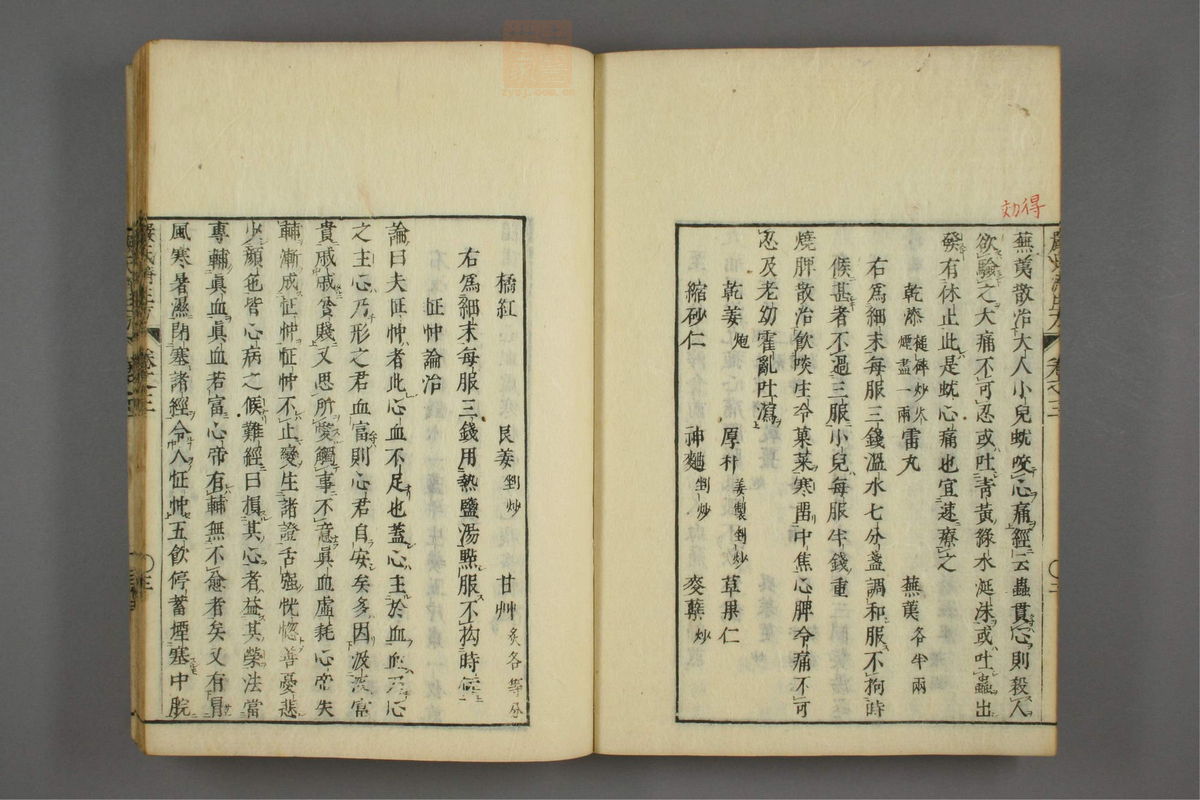 得効
蕪荑散治大人小兒蚘咬心痛經云蟲貫心則殺人
欲驗之大痛不可忍或吐青黃綠水涎沫或吐蟲出
發有休止此是蚘心痛也宜速療之
乾漆 槌碎炒火煙盡一兩 雷丸 蕪荑 各半兩
右爲細末每服三錢溫水七分盞調和服不拘時
候甚者不過三服小兒每服半錢重
燒脾散治飮啖生冷菓菜寒畱中焦心脾令痛不可
忍及老幼霍亂吐瀉
乾姜 炮 厚朴 姜製剉炒 草果仁
縮砂仁 神麯 剉炒 麥蘖 炒
橘紅 良姜 剉炒 甘艸 炙各等分
右爲細末每服三錢用熱鹽湯㸃服不拘時候
怔忡論治
論曰夫怔忡者此心血不足也蓋心主於血血乃心
之主心乃形之君血富則心君自安矣多因汲汲富
貴戚戚貧賤又思所愛觸事不意眞血虛耗心帝失
輔漸成怔忡怔忡不止變生諸證舌强恍惚善憂悲
少顏色皆心病之候難經曰損其心者益其榮法當
專輔眞血眞血若富心帝有輔無不愈者矣又有冐
風寒暑濕閉塞諸經令人怔忡五飮停蓄堙塞中脘